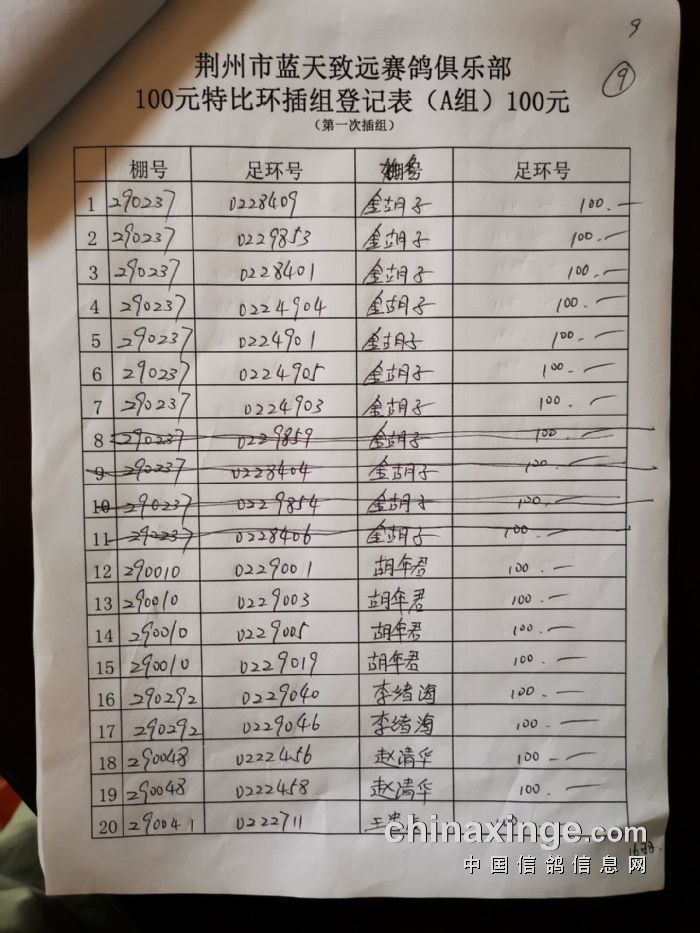 9
9
荆州市蓝天致远赛鸽俱乐部
100元特比环插组登记表（A组）100元
（第一次插组）
棚号 足环号 棚号 足环号
1 290237 0228409 金胡子 100.—
2 290237 0229853 金胡子 100.—
3 290237 0228401 金胡子 100.—
4 290237 0224904 金胡子 100.—
5 290237 0224901 金胡子 100.—
6 290237 0224905 金胡子 100.—
7 290237 0224903 金胡子 100.—
8 290237 0229859 金胡子 100.—
9 290237 0228404 金胡子 100.—
10 290237 0229854 金胡子 100.—
11 290237 0228406 金胡子 100.—
12 290010 0229001 胡年君 100.—
13 290010 0229003 胡年君 100.—
14 290010 0229005 胡年君 100.—
15 290010 0229019 胡年君 100.—
16 290292 0229040 李绪海 100.—
17 290292 0229046 李绪海 100.—
18 290048 0222456 赵清华 100—
19 290048 0222458 赵清华 100.—
20 290041 0222711 王
chinaxinge.com
中国信鸽信息网